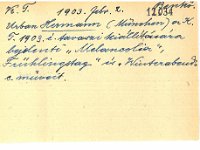 K. T. 1903. febr. 2. 12034
Urban Hermann (München) a K.
T. 1903. é. tavaszi kiállítására
bejelenti "Melancolia",
"Frühlingstag" és "Winterabend"
c. műveit.